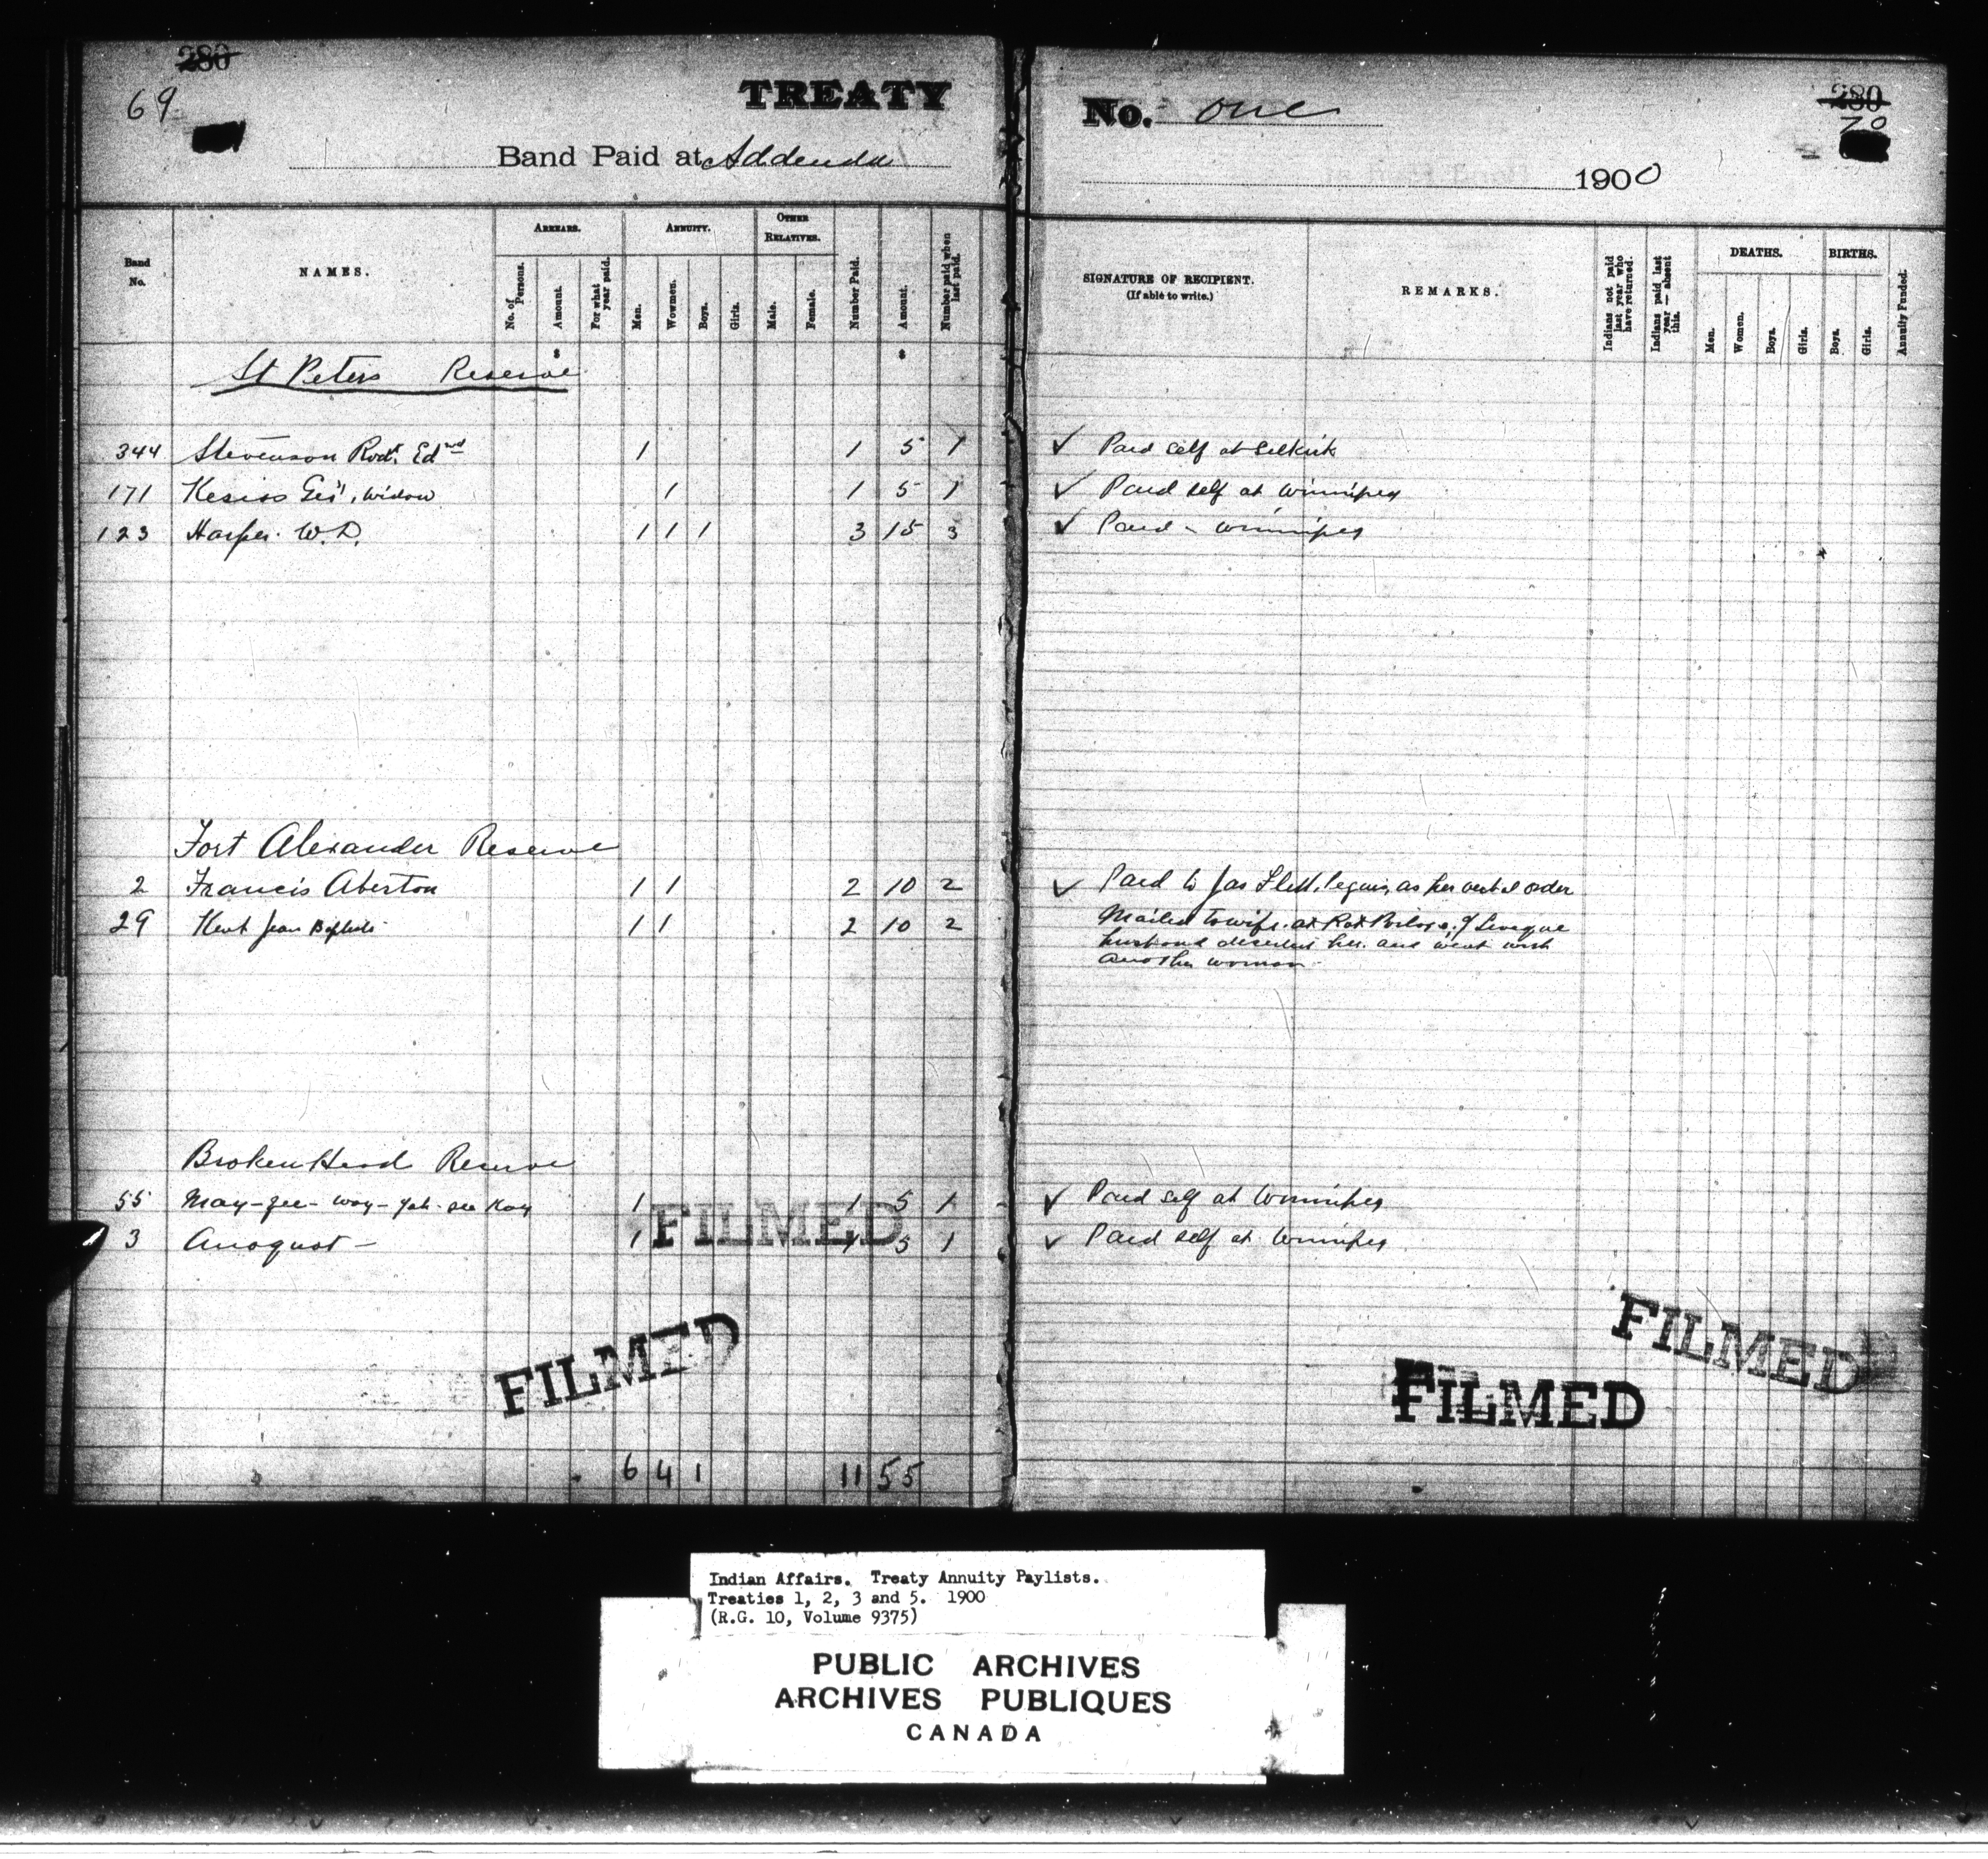 280
69
TREATY
Band Paid at Addenda
Band No.
NAMES.
ARREARS.
No. of Persons.
Amount.
For what year paid.
ANNUITY.
Men.
Women.
Boys.
Girls.
OTHER RELATIVES.
Male.
Female.
Number Paid.
Amount.
Number paid when last paid.
St Peters Reserve
344 Stevenson Rodk. Edwd 1 1 5 1
171 Kesiss widow 1 1 5 1
123 Harper W.D. 1 1 1 3 15 3
Fort Alexander Reserve
2 Francis Aberton 1 1 2 10 2
29 Kent Jean Baptiste 1 1 2 10 2
Broken Head Reserve
55 May-zee-way-yah-see Kay 1 1 5 1
3 Anoquot - 1 1 5 1
FILMED
FILMED
6 4 1 11 55
No. one
280
70
1900
SIGNATURE OF RECIPIENT.
(If able to write.)
REMARKS.
Indians not paid last year who have returned.
Indians paid last year — absent this.
DEATHS.
Men.
Women.
Boys.
Girls.
BIRTHS.
Boys.
Girls.
Annuity Funded.
✓ Paid self at Selkirk
✓ Paid self at Winnipeg
✓ Paid - Winnipeg
✓ Paid to Jas Flett, Peguis, as her verbal order
Mailed to wife at Rat Portage
husband deserted her and went with
another woman
✓ Paid self at Winnipeg
✓ Paid self at Winnipeg
FILMED
FILMED
Indian Affairs. Treaty Annuity Paylists.
Treaties 1, 2, 3 and 5. 1900
(R.G. 10, Volume 9375)
PUBLIC ARCHIVES
ARCHIVES PUBLIQUES
CANADA